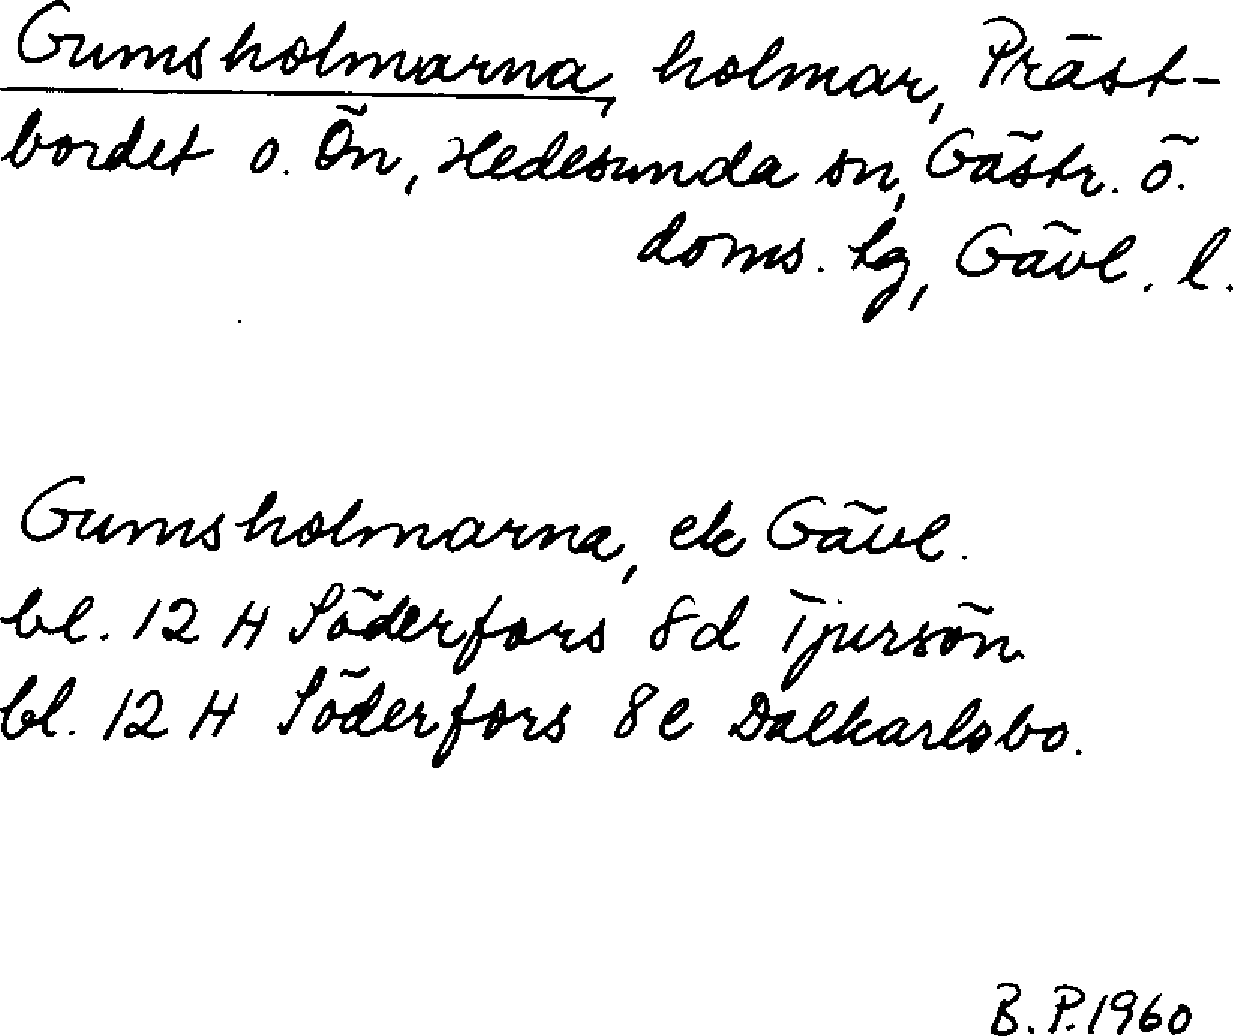 Gumsholmarna, holmar, Präst-
bordet o. Ön, Hedesunda sn, Gästr. ö.
doms. lg, Gävl. l.
Gumsholmarna, ek Gävl.
bl. 12 H Söderfors 8d Tjursön.
bl. 12 H Söderfors 8e Dalkarlsbo.
B.P. 1960